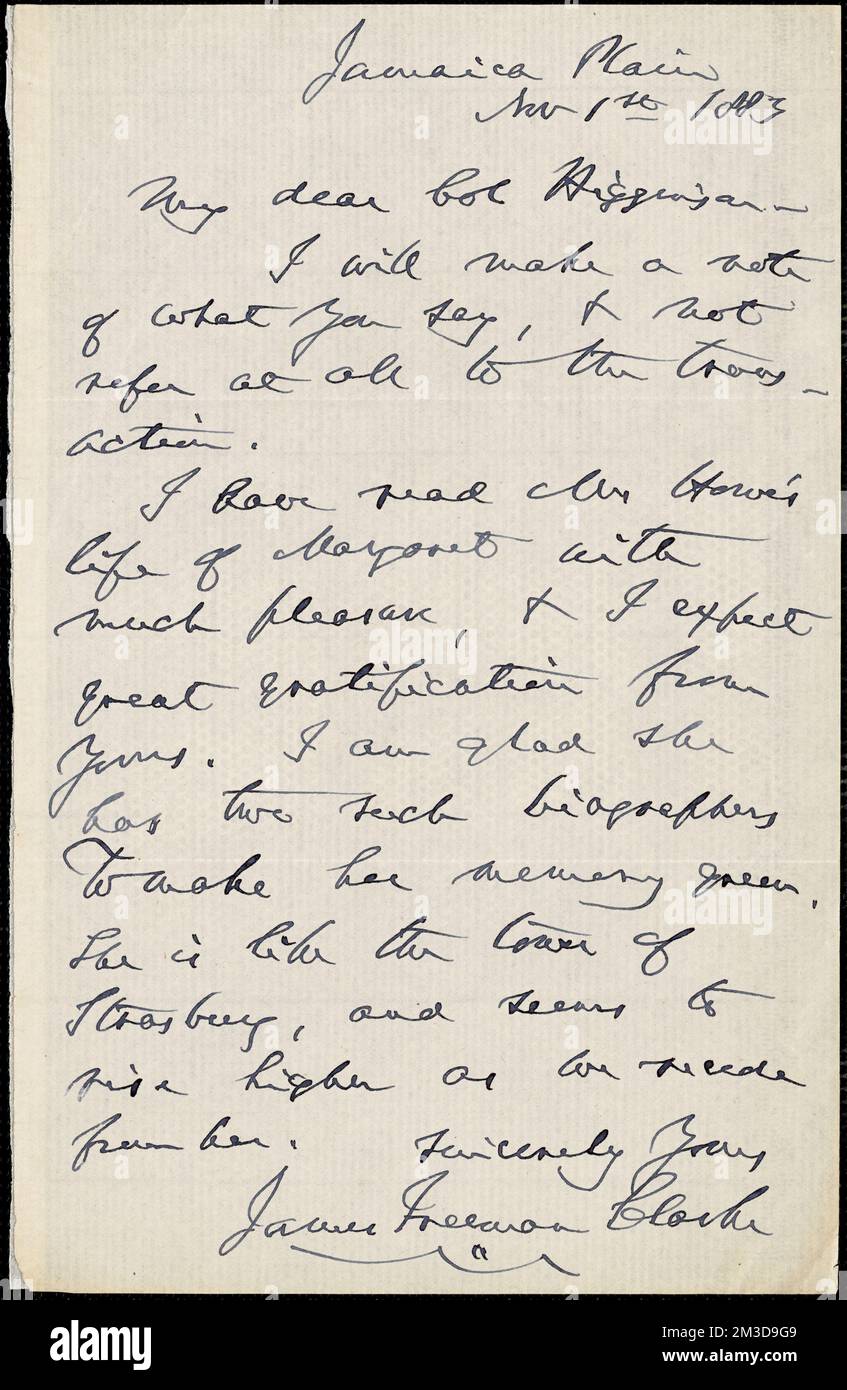 Jamaica Plain
Nov 1st 1883
My dear Col Higginson -
I will make a note
of what you say, & not
refer at all to the trans-
action.
I have read Mrs Howe's
life of Margaret with
much pleasure, & I expect
great gratification from
Yours. I am glad she
has two such biographers
to make her memory green.
She is like the tower of
Strasburg, and seems to
rise higher as we recede
from her. Sincerely Yours
James Freeman Clarke
alamy
Image ID: 2M3D9G9
www.alamy.com